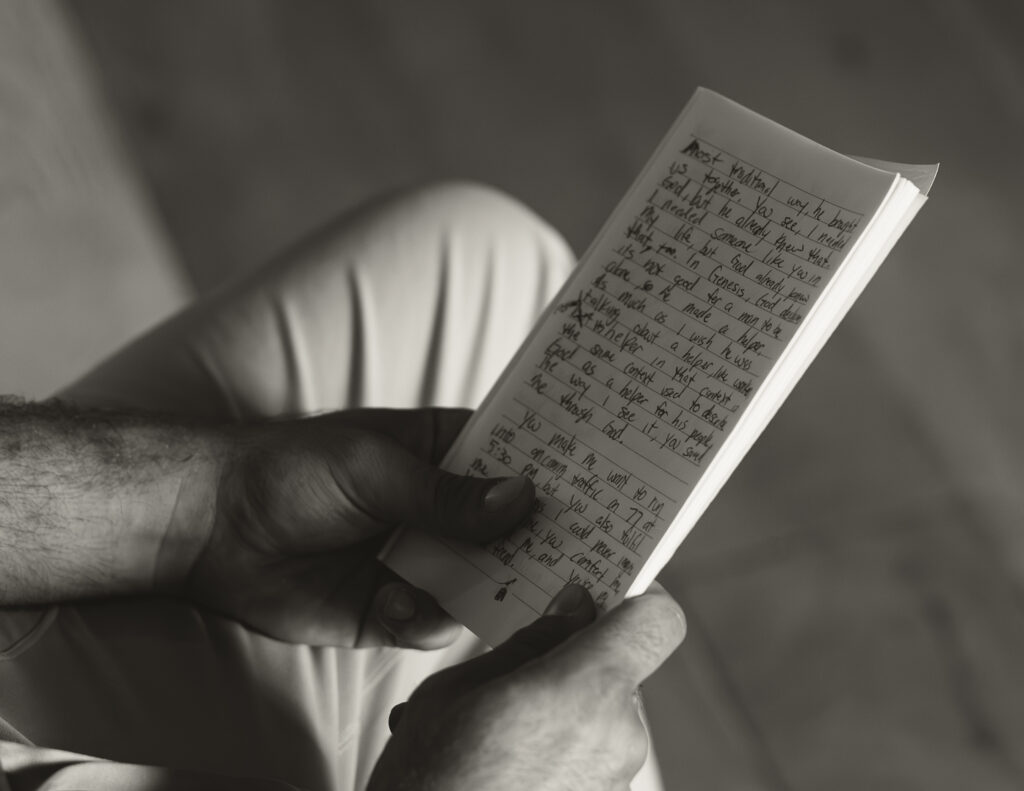 Most traditional way, he brought
us together. You see, I needed
God, but he already knew that.
I needed someone like you in
my life, but God already knew
that, too. In Genesis, God
it's not good for a man to be
alone, so he made a helper.
As much as I wish he was
talking about a helper, like
helper in that context is
the same context used to describe
God as a helper for his people.
The way I see it, you
me through God.
You make me want to run
into oncoming traffic on 77 at
5:30 PM, but you also
me
I could never
you comfort me,
me, and